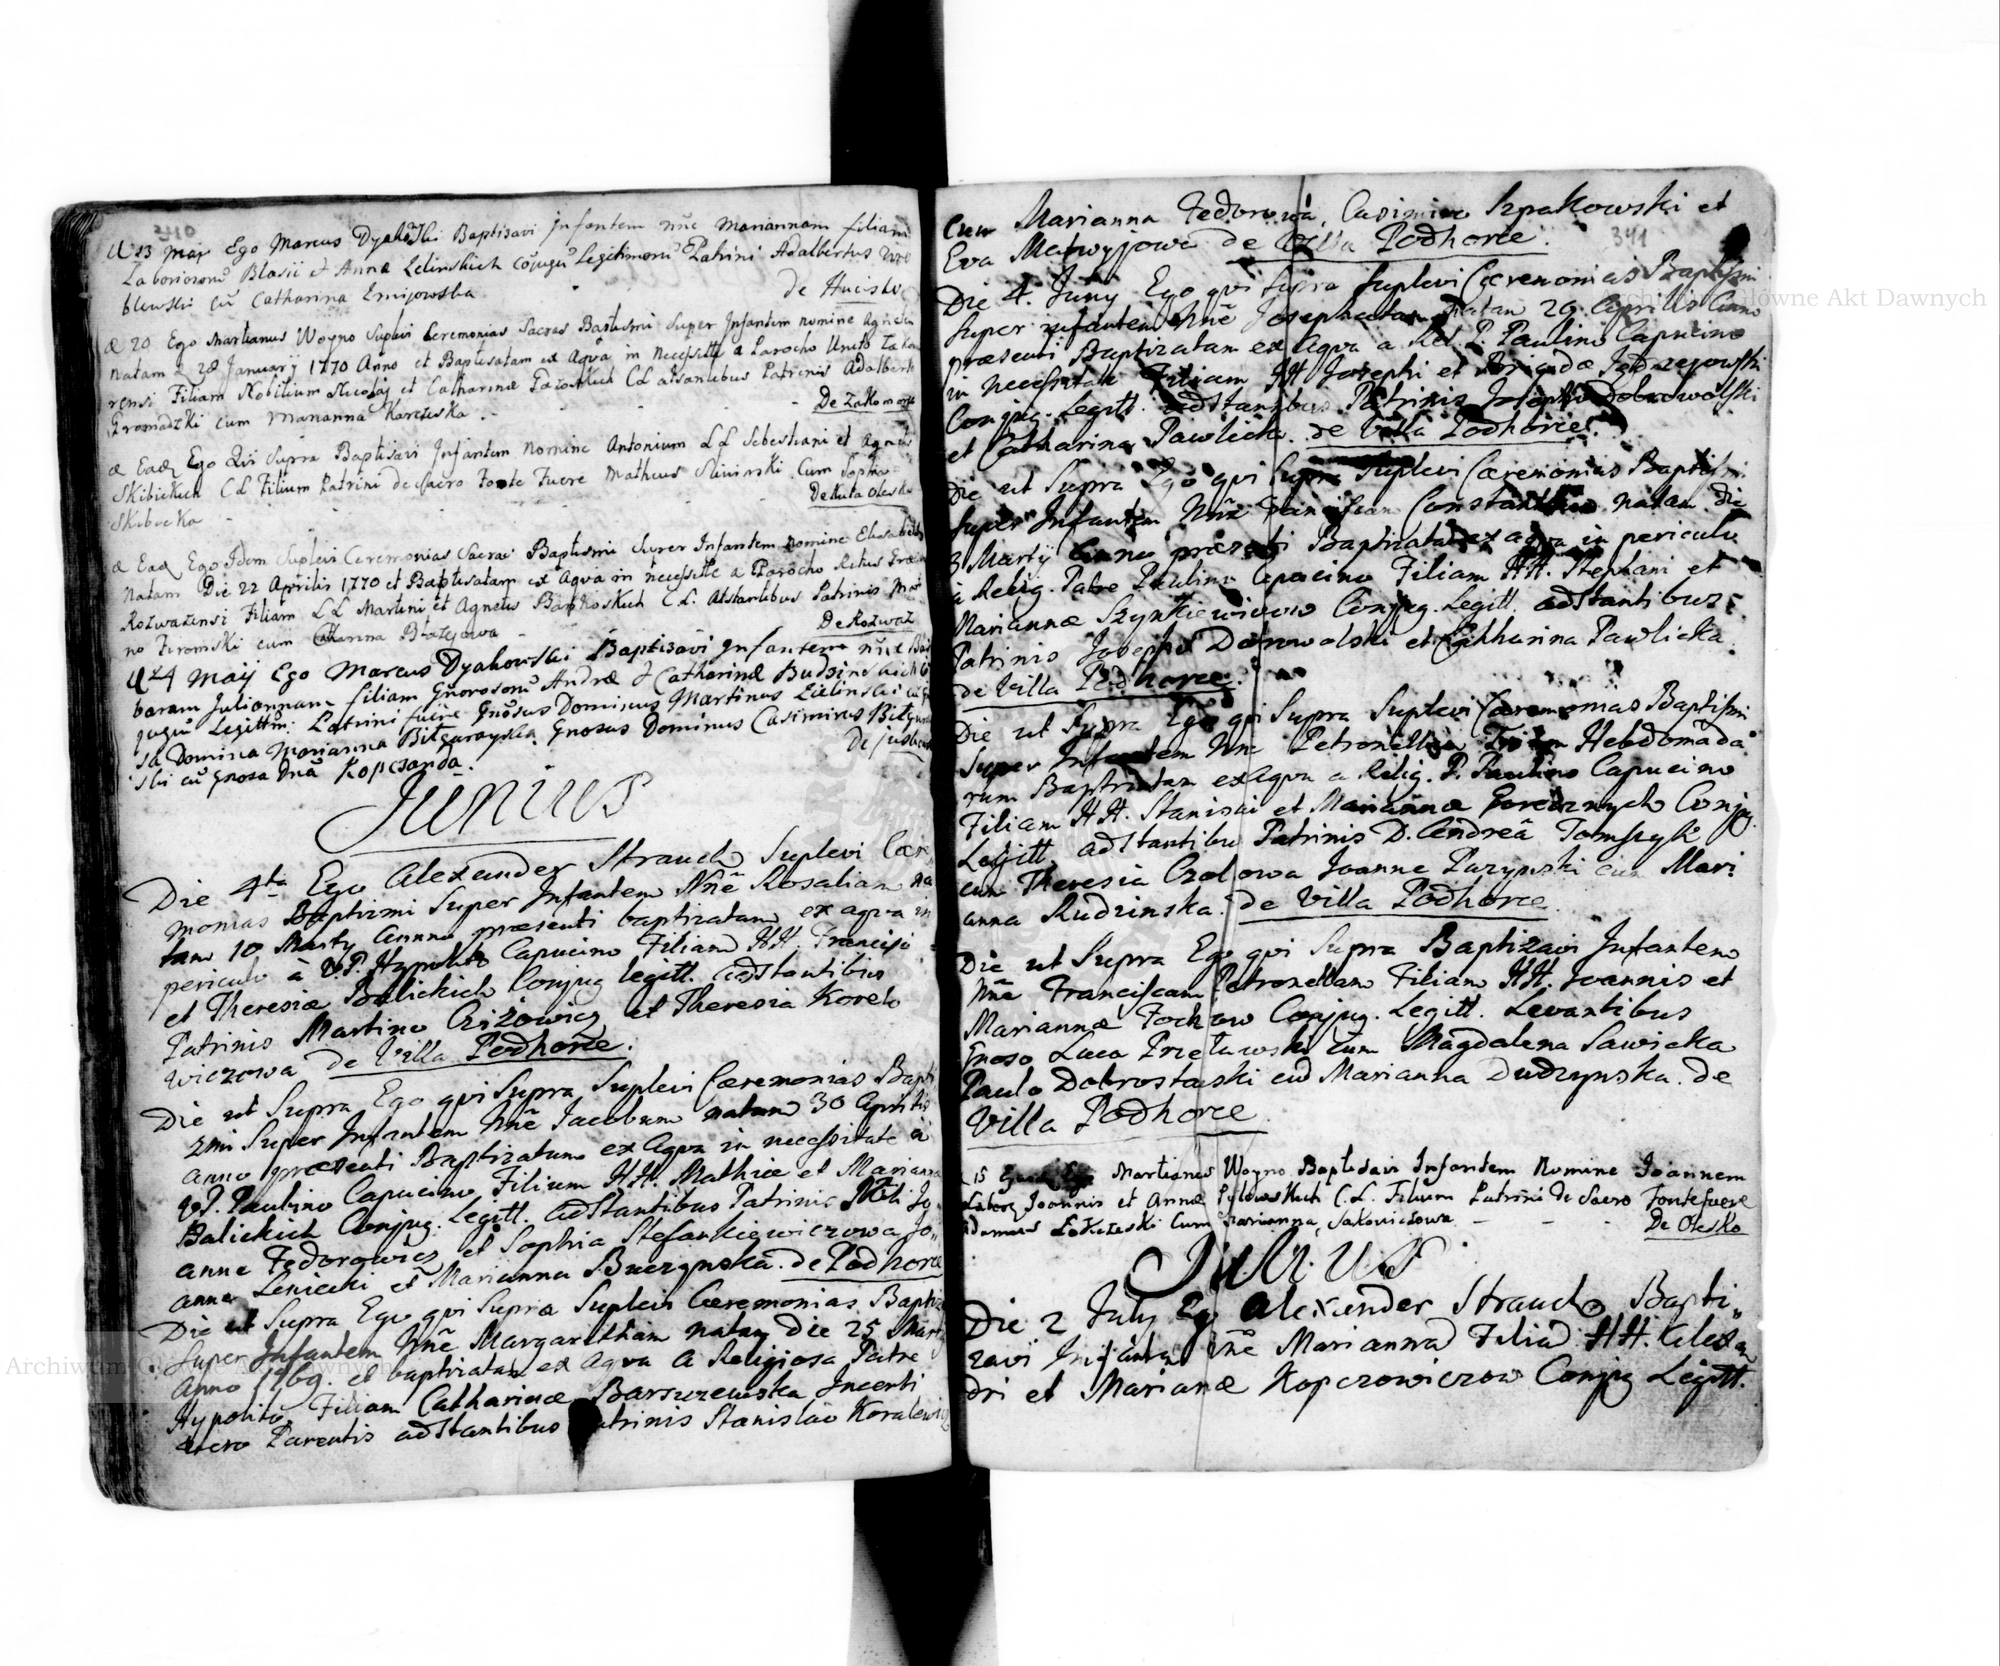 310
d 13 Maj Ego Marcus Dyakowski Baptisavi Infantem nne Mariannam filiam
Laboriosorū Blasii et Anna Zelinskich cōjugū Legitimorū Patrini Adalbertus
blewski cū Catharina Emijowska de Huisko
d 20 Ego Martianus Woyno Suplevi Ceremonias Sacras Baptismi Super Infantem nomine Agnetem
natam d 28 January 1770 Anno et Baptisatam ex Aqvâ in necessitte a Parocho Unito Zakom
rensi Filiam Nobilium Nicolaj et Catharinæ CL atsantibus Patrinis Adalberto
Gromadzki cum Marianna Karczewska - - - De Zakomorze
d Eadē Ego Qūi Supra Baptisavi Infantem Nomine Antonium LL Sebestiani et Agnetis
Skibickich CL Filium Patrini de Sacro Fonte Fuere Matheus Sliwinski Cum Sophia
Skibicka - - - De Huta Oleska
d Eadē Ego Idem Suplevi Ceremonias Sacras Baptismi Super Infantem nomine Elisabeth
Natam Die 22 Aprilis 1770 et Baptisatam ex Aqvâ in necessitte a Parocho Ritus Græci
Rozwazensi Filiam LL Martini et Agnetis CL. Atstantibus Patrinis Mar
no Furomski cum Catharina Blazejowa - De Rozwaz
d 24 Maij Ego Marcus Dyakowski Baptisavi Infantem nne Bar
baram Juliannam filiam Gnorosorū Andræ et Catharinæ Budzinskich cō
jugū Legittim: Patrini fuere Gnosus Dominus Martinus Zielinski cū Gno
sa Domina Marianna Bilgarayska. Gnosus Dominus Casimirus Bilgoray
ski cū Gnosa Dnā Kopcsanda.
Junius
Die 4ta Ego Alexander Strauch Suplevi Cære
monias Baptizmi Super Infantem Nnē Rosaliam na
tam 10 Marty Annno præsenti baptizatam ex aqva in
periculo à VP. Hypolito Capucino Filiam HH. Francisci
et Theresiæ Balickich Conjug legitt. adstantibus
Patrinis Martino Czizowicz et Theresia Korele
wiczowa de Villa Podhorce.
Die ut Supra Ego qvi Supra Suplevi Cæremonias Bapti
zmi Super Infantem Nnē Jacobum natum 30 Aprilis
anno præsenti Baptizatum ex Aqva in necessitate à
VP. Paulino Capucino, Filium HH. Mathiæ et Marianna
Balickich Conjug. Legitt. adstantibus Patrinis Jo
anne Fedorowicz et Sophia Stefankiewiczowa Jo„
anne Leniecki et Marianna Buczynska. de Podhorce
Die ut Supra Ego qvi Supra Suplevi Cæremonias Baptiz
Super Infantem Nnē Margaretham natam die 25 Marty
Anno 1769. et baptizatam ex Aqva a Religioso Patre
Hypolito, Filiam Catharinæ Barszczewska Incerti
vero Parentis adstantibus Patrinis Stanislao Koralewicz
341
Cum Marianna Fedorowa, Casimiro Szpakowski et
Eva Matwyjowa de Villa Podhorce.
Die 4. Juny Ego qvi Supra Suplevi Cæremonias Baptismi
Super infantem Nnē Josepham natam 29 Aprilis Anno
præsenti Baptizatam ex Aqva a Rel. P. Paulino Capucino
in necessitate Filiam HH Josephi et Brigidæ Jędrzejowski
Conjug. Legitt. adstantibus Patrinis Josepho Dobrowolski
et Catharina Pawlicka. de Villa Podhorce.
Die ut Supra Ego qvi Supra Suplevi Cæremonias Baptismi
Super Infantem Nnē Franciscam Constantiam natam die
3 Marty Anno præsenti Baptizatam ex aqva in periculo
à Relig. Patre Paulino Capucino Filiam HH. Stephani et
Mariannæ Szynkiewiczow Conjug. Legitt. adstantibus
Patrinis Josepho Dobrowolski et Catharina Pawlicka.
de Villa Podhorce.
Die ut Supra Ego qvi Supra Suplevi Cæremonias Baptismi
Super Infantem Nne Petronellam Trium Hebdomada
rum Baptizatam ex Aqva a Relig. P. Paulino Capucino
Filiam HH. Stanislai et Mariannæ Conjug.
Legitt. adstantibus Patrinis D. Andreâ Tomszyk
cum Theresia Czolowa Joanne Purzynski cum Mari
anna Rudzinska. de Villa Podhorce
Die ut Supra Ego qvi Supra Baptizavi Infantem
Nnē Franciscam Petronellam Filiam HH. Joannis et
Mariannæ Fochrow Conjug. Legitt. Levantibus
Gnoso Luca Przetawski Cum Magdalena Sawicka
Paulo Dobrostanski cū Marianna Dudzynska. de
Villa Podhorce
d 15 Martianus Woyno Baptisavi Infantem Nomine Joannem
Labor Joannis et Annæ CL. Filium Patrini de Sacro Fonte fuere
Cum Marianna Sakowiczowa - - - De Olesko
Julius
Die 2 July Ego Alexander Strauch Bapti„
zavi Infantem Nnē Mariannā Filiā HH. Alexan
dri et Marianæ Kopczowiczow Conjug Legitt.
Archiwum Główne Akt Dawnych
Archiwum Główne Akt Dawnych